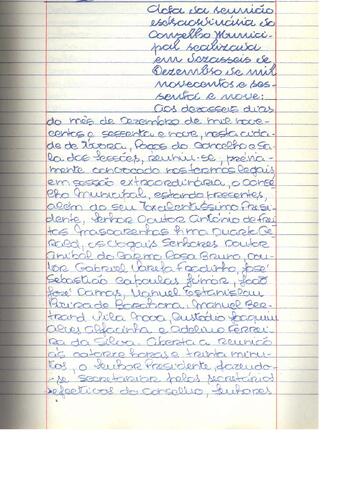 Acta da reunião
extraordinária do
Conselho Munici-
pal realizada
em dezasseis de
Dezembro de mil
novecentos e ses-
senta e nove:
Aos dezasseis dias
do mês de Dezembro de mil nove-
centos e sessenta e nove, nesta cida-
de de Évora, Paços do Concelho e Sa-
la das Sessões, reuniu-se, prèvia-
mente convocado nos termos legais
em sessão extraordinária, o Conse-
lho Municipal, estando presentes,
além do seu Excelentíssimo Presi-
dente, Senhor Doutor António de Frei-
tas Mascarenhas Lima Duarte Ge-
rald, os Vogais Senhores Doutor
Aníbal do Carmo Rosa Bruno, Dou-
tor Gabriel Varela Fradinho, José
Sebastião Cabaulas Júnior, João
José Damas, Manuel Estanislau
Vieira de Barahona, Manuel Ber-
trand Vila Nova, Custódio Joaquim
Alves Alfacinha e Adelino Ferrei-
ra da Silva. Aberta a reunião
às catorze horas e trinta minu-
tos, o Senhor Presidente, fazendo-
-se secretariar pelos secretários
efectivos do Conselho, Senhores